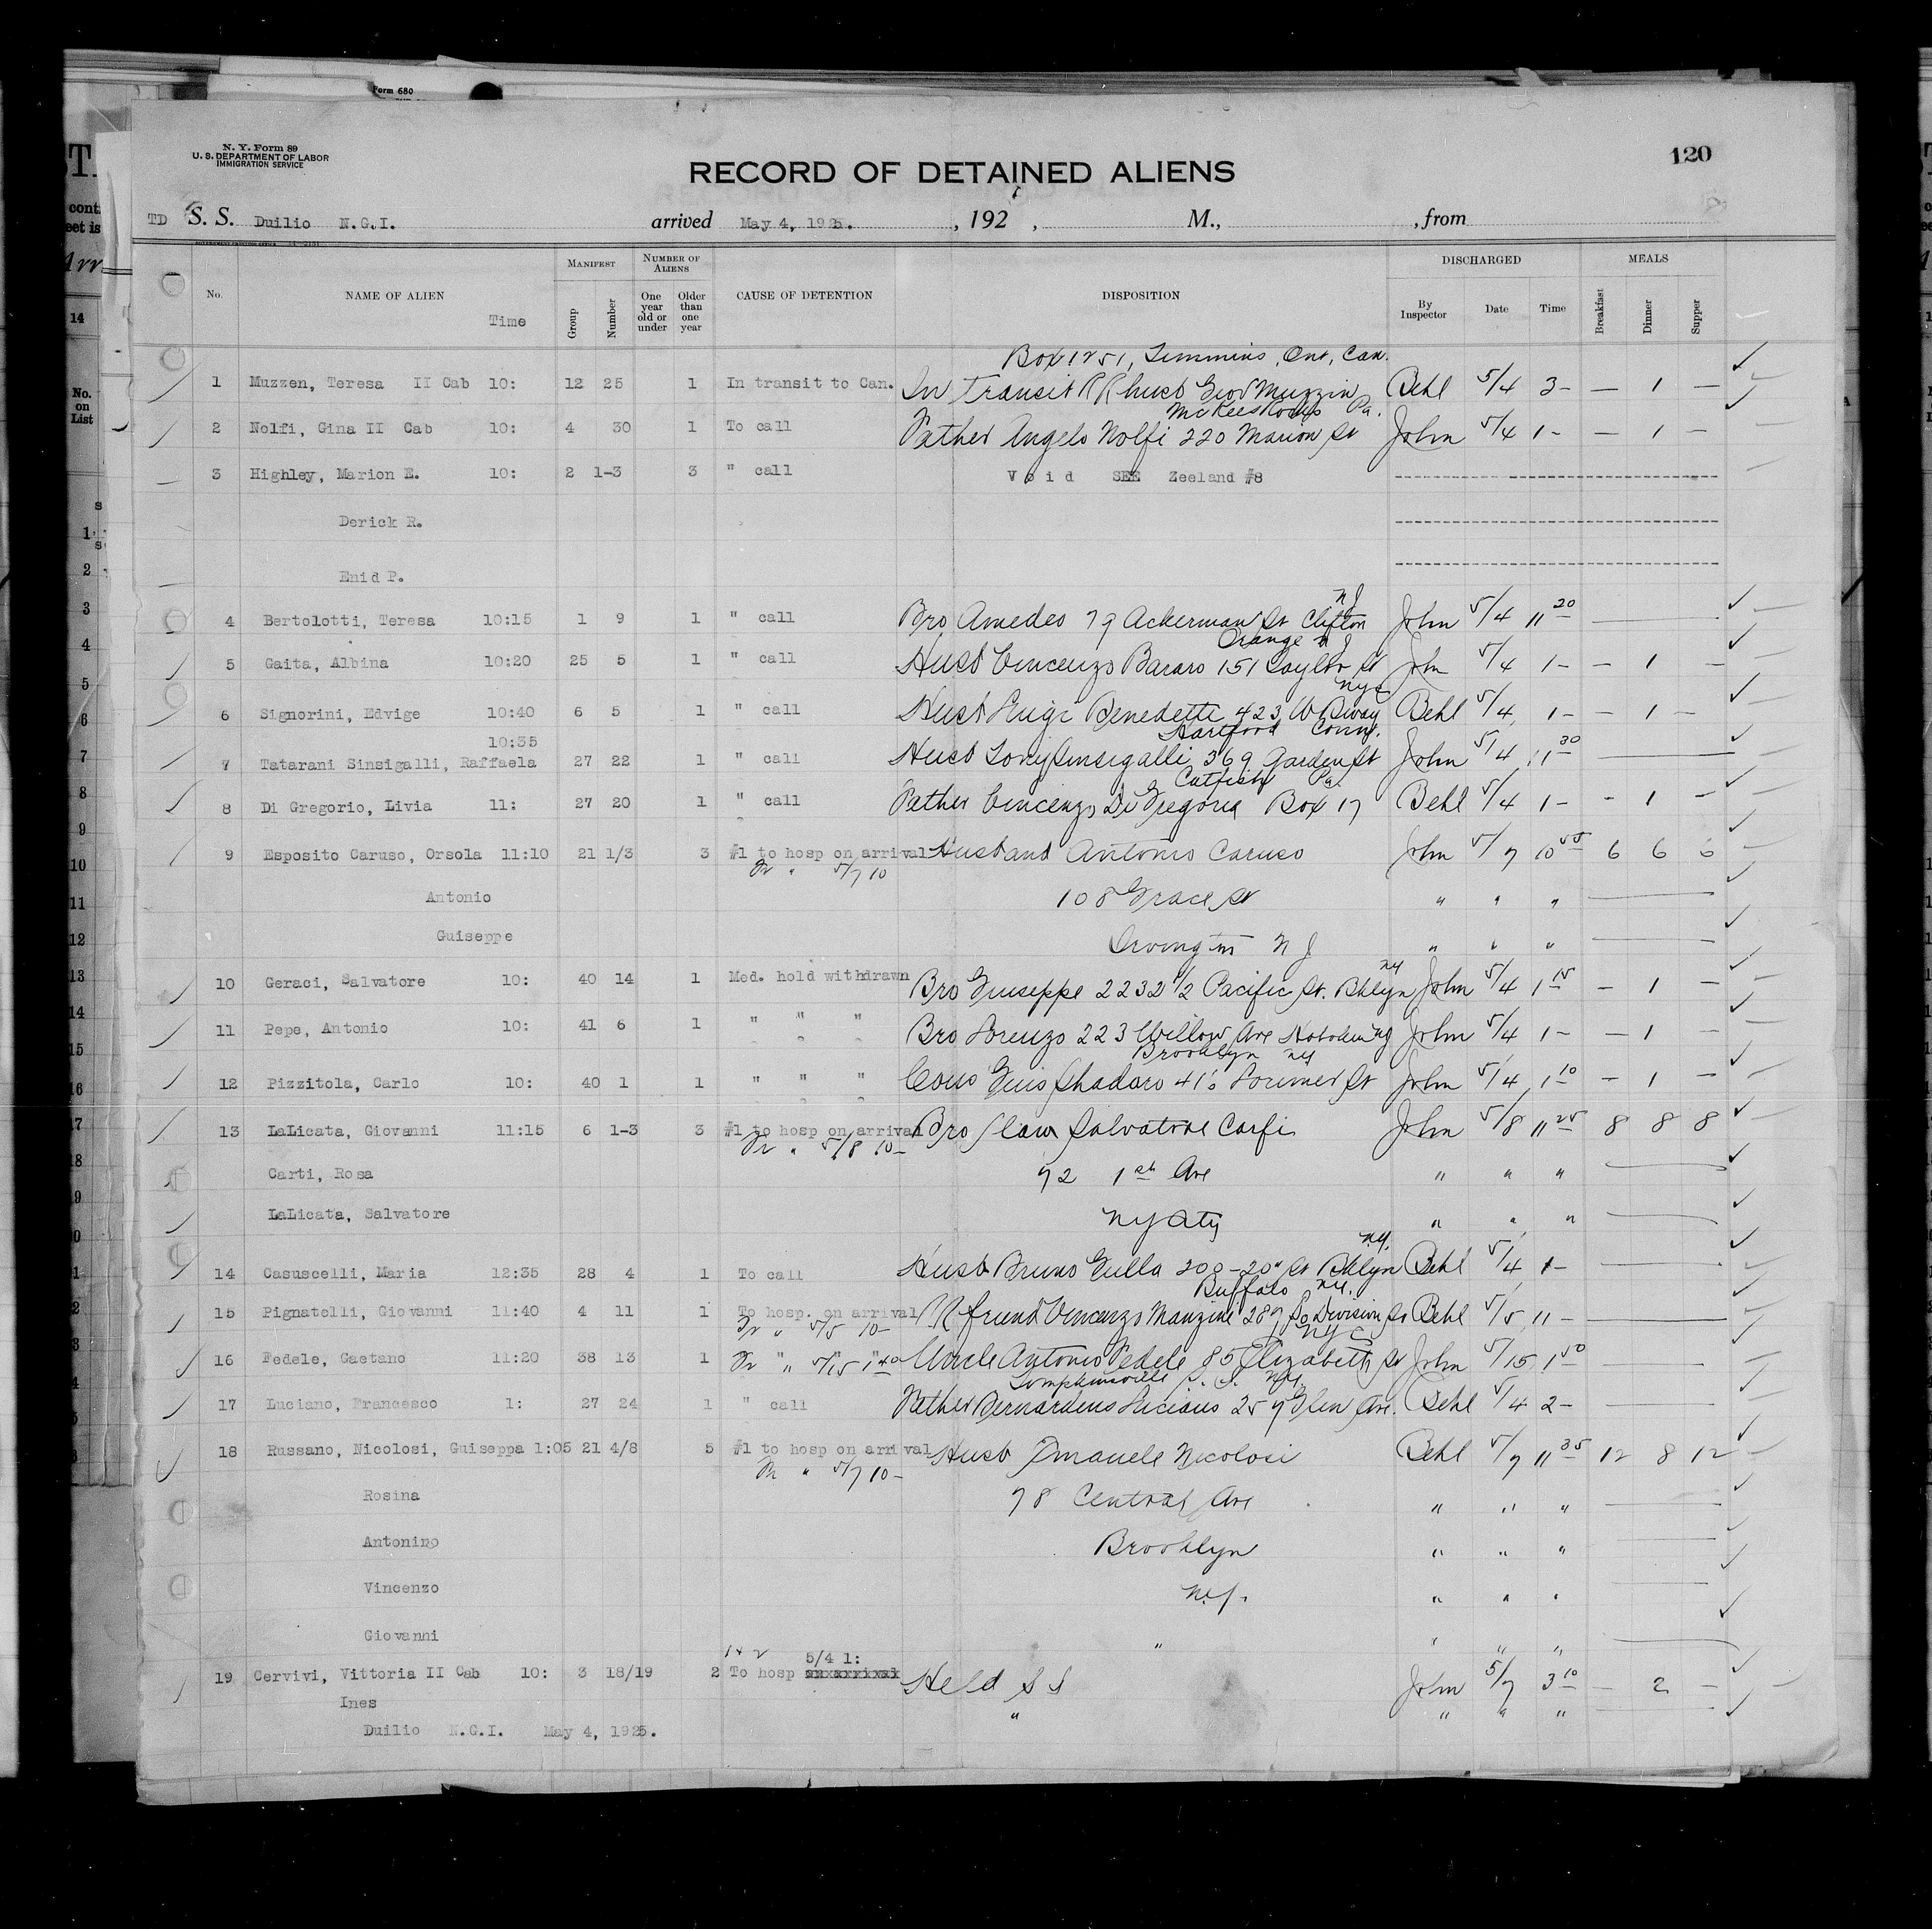 Form 680
N. Y. Form 89
U. S. DEPARTMENT OF LABOR
IMMIGRATION SERVICE
120
RECORD OF DETAINED ALIENS
TD S. S. Duilio N.G.I. arrived May 4, 1925. , 192 , M., , from
No. NAME OF ALIEN Time MANIFEST Group Number NUMBER OF ALIENS One year old or under Older than one year CAUSE OF DETENTION DISPOSITION DISCHARGED By Inspector Date Time MEALS Breakfast Dinner Supper
Box 1251, Timmins, Ont, Can.
1 Muzzen, Teresa II Cab 10: 12 25 1 In transit to Can. In Transit RR husb Geo Muzzin Behl 5/4 3- — 1 —
McKees Rocks Pa.
2 Nolfi, Gina II Cab 10: 4 30 1 To call Father Angelo Nolfi 220 Marion St John 5/4 1- — 1 —
3 Highley, Marion E. 10: 2 1-3 3 " call V o i d SEE Zeeland #8
Derick R.
Enid P.
N J
4 Bertolotti, Teresa 10:15 1 9 1 " call Bro Amedeo 79 Ackerman St Clifton John 5/4 11 20
Orange N J
5 Gaita, Albina 10:20 25 5 1 " call Husb Vincenzo Bararo 151 Taylor St John 5/4 1- — 1 —
NYC
6 Signorini, Edvige 10:40 6 5 1 " call Husb Luigi Benedetti 423 W Bway Behl 5/4 1- — 1 —
10:35 Hartford Conn.
7 Tatarani Sinsigalli, Raffaela 27 22 1 " call Husb Tony Sinsigalli 369 Garden St John 5/4 11 30
Catfish Pa
8 Di Gregorio, Livia 11: 27 20 1 " call Father Vincenzo Di Gregoria Box 17 Behl 5/4 1- - 1 -
9 Esposito Caruso, Orsola 11:10 21 1/3 3 #1 to hosp on arrival Husband Antonio Caruso John 5/7 10 55 6 6 6
Fr " 5/7 10
Antonio 108 Grace St " " "
Guiseppe Irvington N J " " "
NY
10 Geraci, Salvatore 10: 40 14 1 Med. hold withdrawn Bro Giuseppe 2232 1/2 Pacific St. Bklyn John 5/4 1 15 — 1 —
11 Pepe, Antonio 10: 41 6 1 " " " Bro Lorenzo 223 Willow Ave Hoboken NJ John 5/4 1- — 1 —
Brooklyn NY
12 Pizzitola, Carlo 10: 40 1 1 " " " Cous Guis Shadaro Lorimer St John 5/4 1 10 — 1 —
13 LaLicata, Giovanni 11:15 6 1-3 3 #1 to hosp on arrival Bro / law Salvatore Carfi John 5/8 11 25 8 8 8
Fr " 5/8 10-
Carti, Rosa 92 1st Ave " " "
LaLicata, Salvatore NY City " " "
N.Y.
14 Casuscelli, Maria 12:35 28 4 1 To call Husb Bruno Gulla 200-20" St Bklyn Behl 5/4 1-
Buffalo NY.
15 Pignatelli, Giovanni 11:40 4 11 1 To hosp. on arrival friend Vincenzo Manzine 287 So Division St Behl 5/5 11 -
Fr " 5/5 10-
NYC
16 Fedele, Gaetano 11:20 38 13 1 " " Fr " 5/15 1 40 Uncle Antonio Fedele 85 Elizabeth St John 5/15 1 50
Tompkinsville S. I. NY.
17 Luciano, Francesco 1: 27 24 1 " call Father Bernardens Luciano 257 Glen Ave. Behl 5/4 2-
18 Russano, Nicolosi, Guiseppa 1:05 21 4/8 5 #1 to hosp on arrival Husb Emanuele Nicolosi Behl 5/7 11 35 12 8 12
Fr " 5/7 10-
Rosina 78 Central Ave " " "
Antonino Brooklyn " " "
Vincenzo N.Y. " " "
Giovanni " " " "
1 + 2 5/4 1:
19 Cervivi, Vittoria II Cab 10: 3 18/19 2 To hosp on arrival Held S S John 5/7 3 10 — 2 —
Ines " " " "
Duilio N.G.I. May 4, 1925.